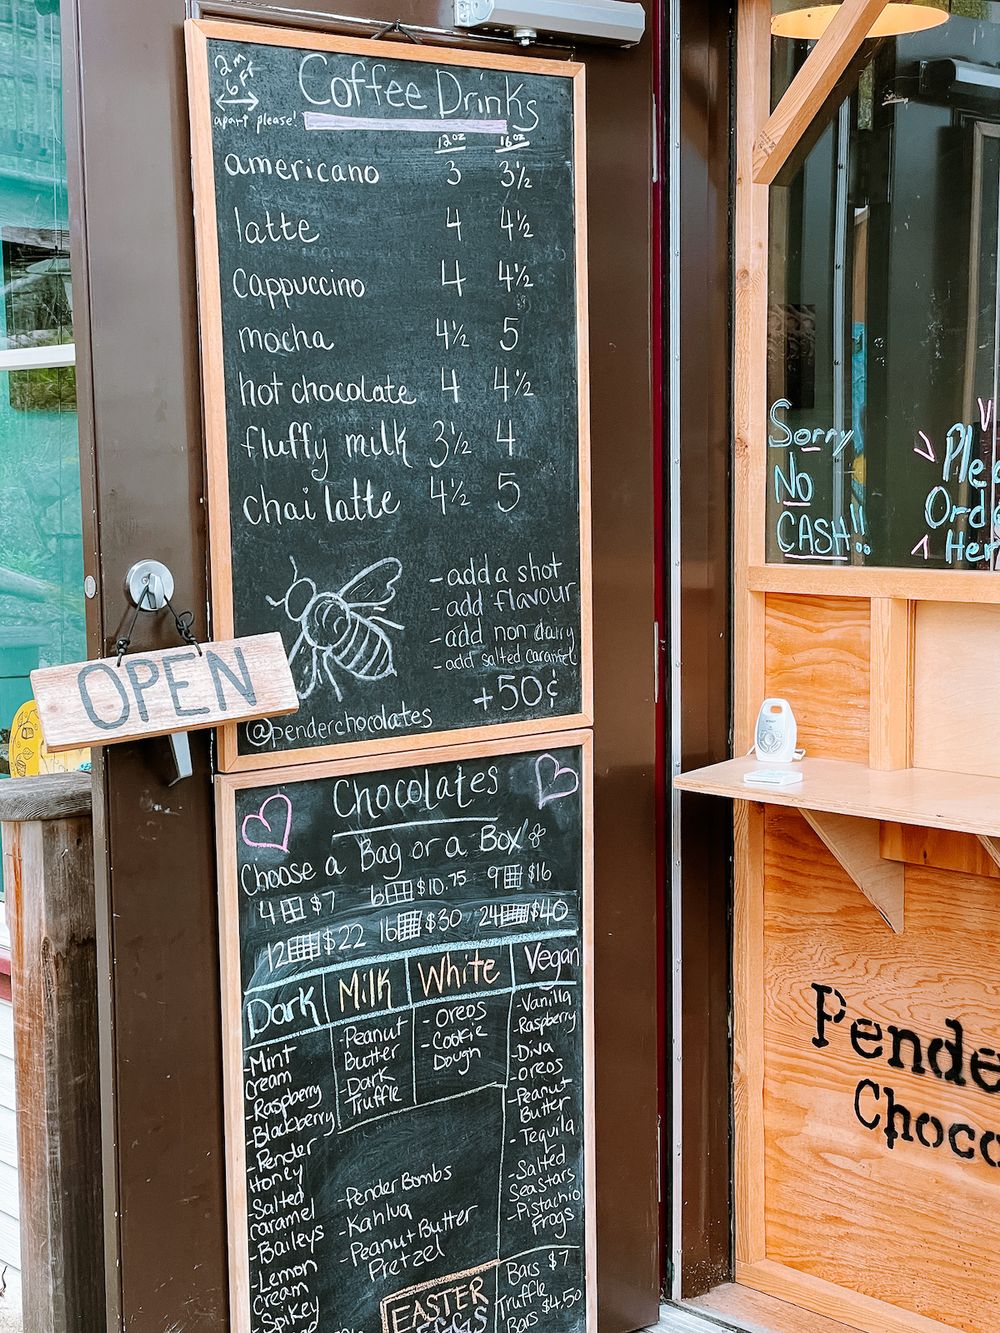 2m
6FT
apart please!
Coffee Drinks
12oz 16oz
americano 3 3½
latte 4 4½
cappuccino 4 4½
mocha 4½ 5
hot chocolate 4 4½
fluffy milk 3½ 4
chai latte 4½ 5
-add a shot
-add flavour
-add non dairy
-add salted caramel
+50¢
@penderchocolates
OPEN
Chocolates
Choose a Bag or a Box
4 $7 6 $10.75 9 $16
12 $22 16 $30 24 $40
Dark Milk White Vegan
-Mint
Cream
-Raspberry
-Blackberry
-Pender
Honey
-Salted
caramel
-Baileys
-Lemon
Cream
-Spikey
-Peanut
Butter
-Dark
Truffle
-Oreos
-Cookie
Dough
-Vanilla
-Raspberry
-Diva
-Oreos
-Peanut
Butter
-Tequila
-Salted
Sea Stars
-Pistachio
Frogs
-Pender Bombs
-Kahlua
-Peanut Butter
Pretzel
EASTER
EGGS
Bars $7
Truffle
Bars $4.50
Sorry
No
CASH!!
Plea
Orde
Her
Pende
Choco